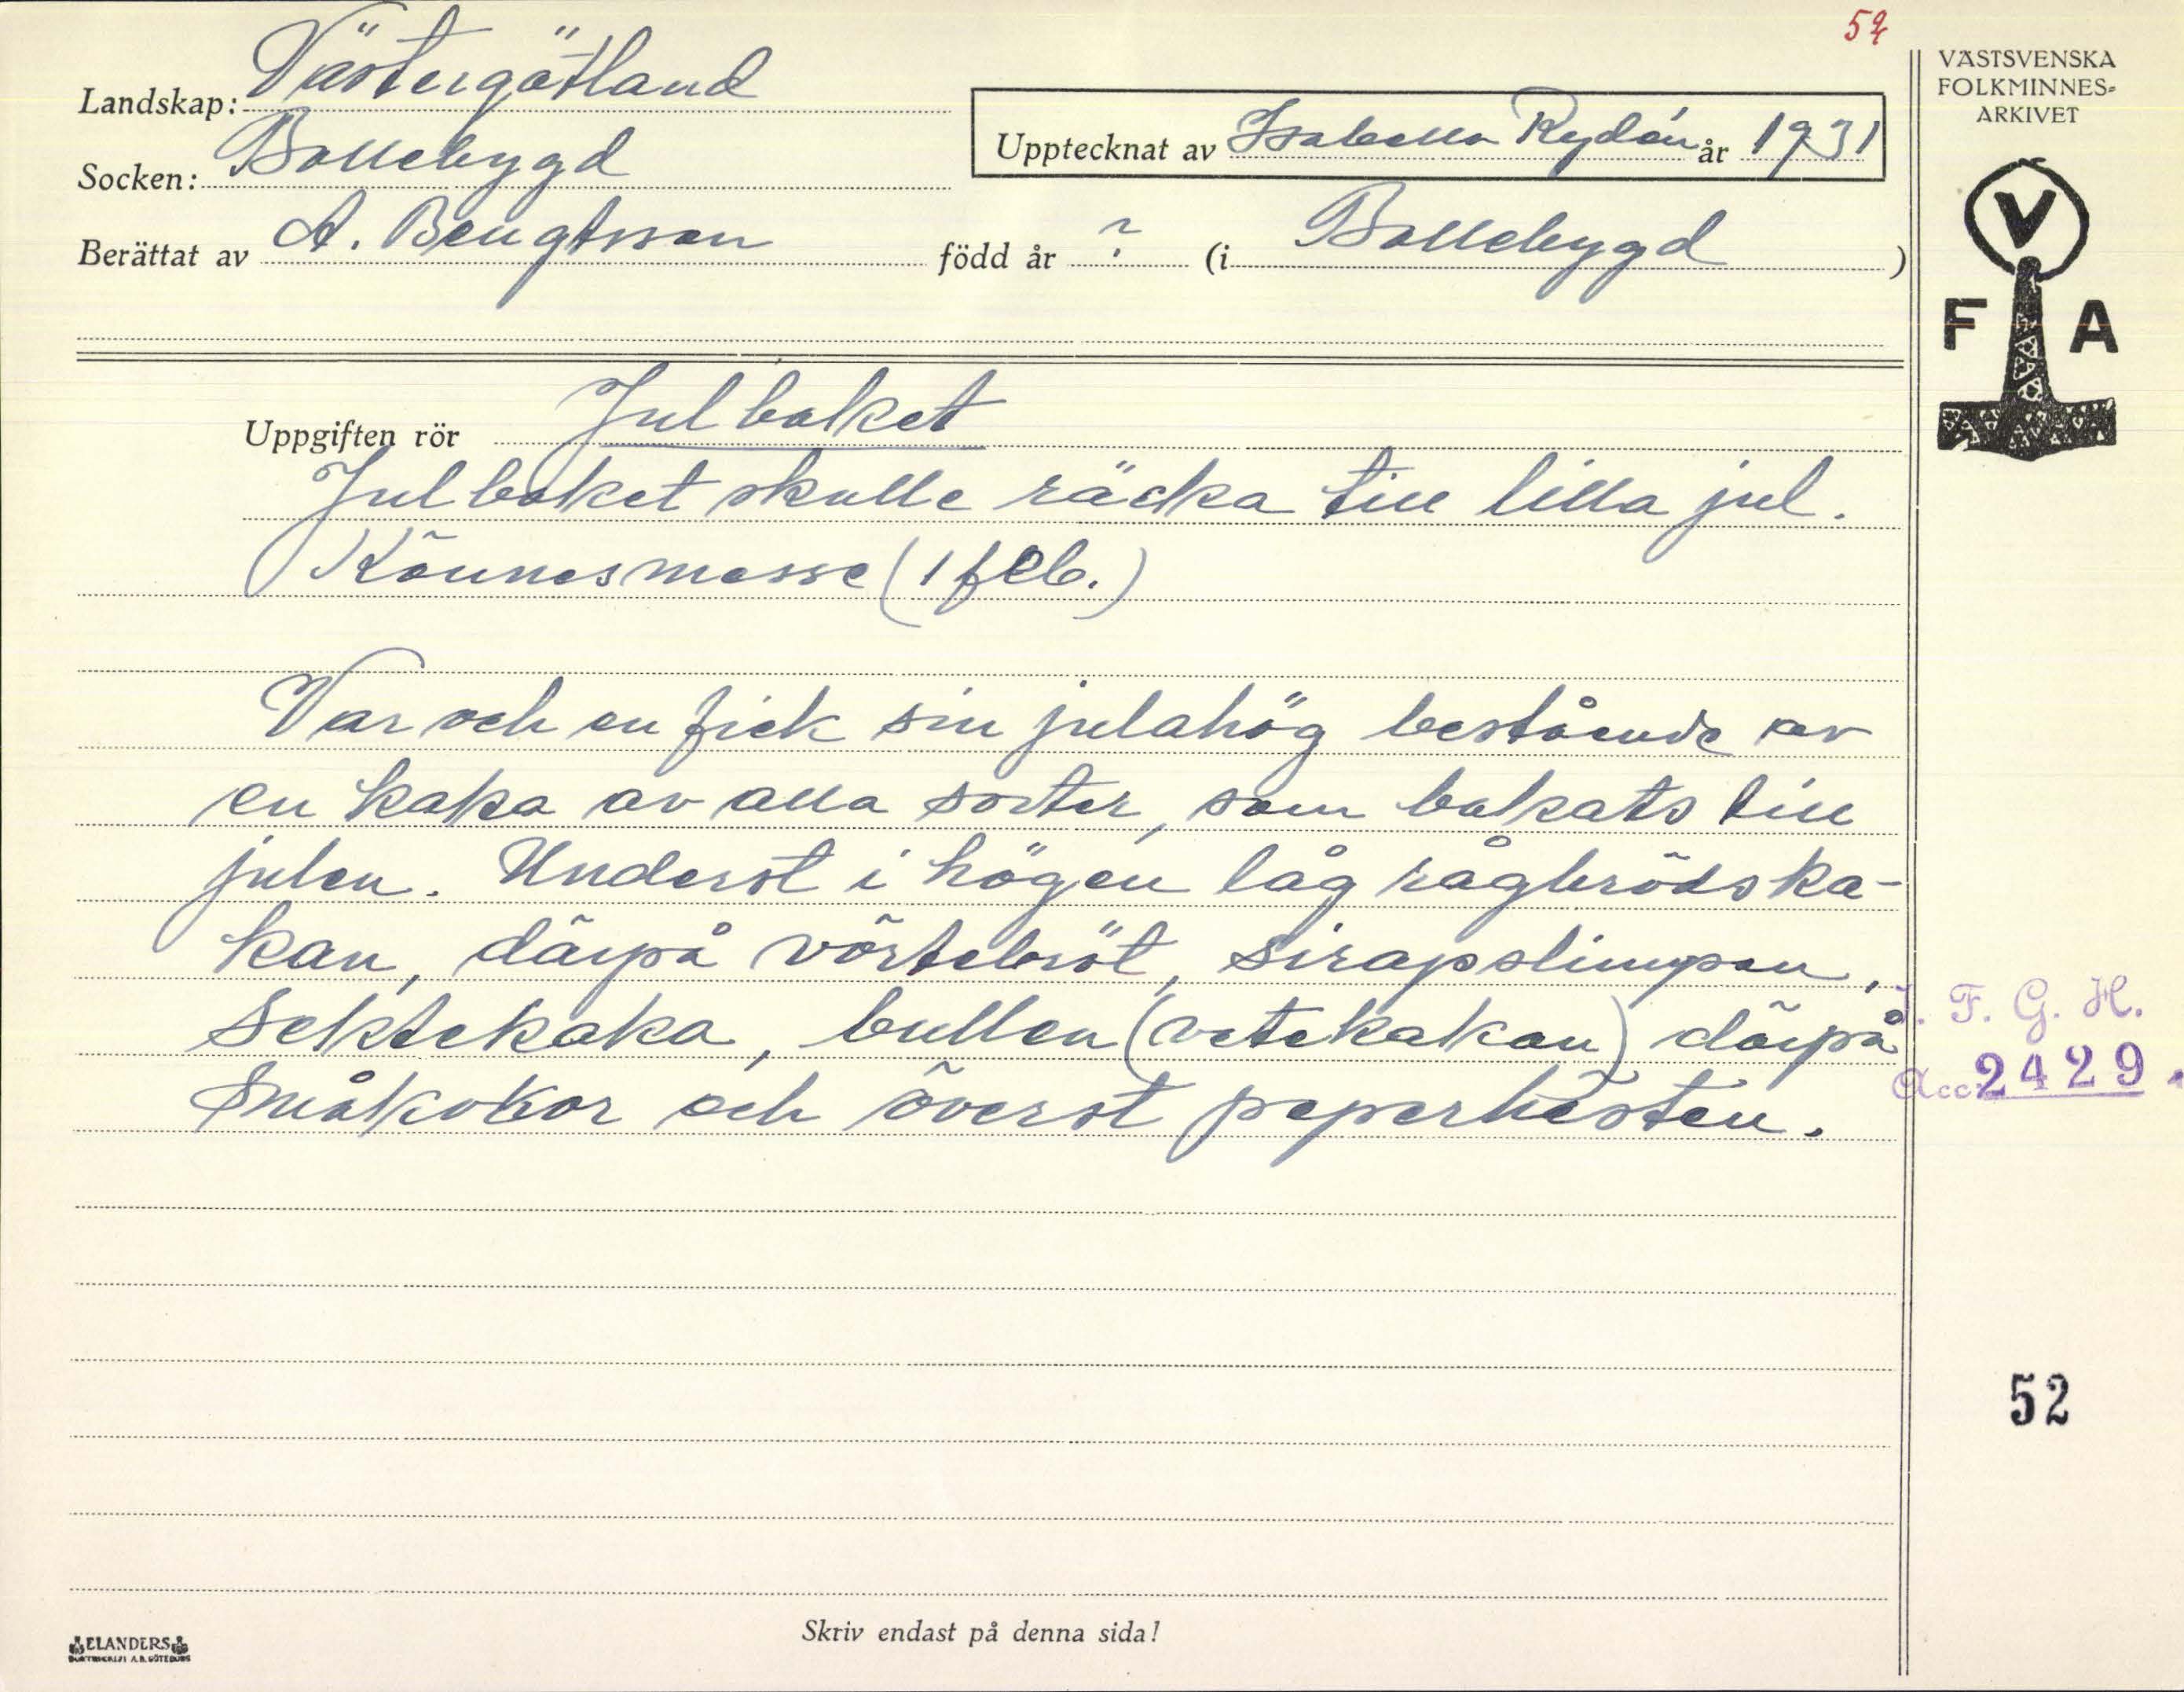 52
Landskap: Västergötland
Socken: Bollebygd
Berättat av A. Bengtsson född år ? (i Bollebygd )
Upptecknat av Isabella Rydén år 1931
VÄSTSVENSKA
FOLKMINNES-
ARKIVET
V
F A
Uppgiften rör Julbaket
Julbaket skulle räcka till lilla jul.
Könnesmesse (1 feb.)
Var och en fick sin julahög bestående av
en kaka av alla sorter, som bakats till
julen. Underst i högen låg rågbrödska-
kan, därpå vörtebröt, sirapslimpan,
Sektekaka, bullen (vetekakan) därpå
Småkakor och överst peperhästen.
I. F. G. H.
Acc. 2429.
52
Skriv endast på denna sida!
ELANDERS
BOKTRYCKERI A.B. GÖTEBORG